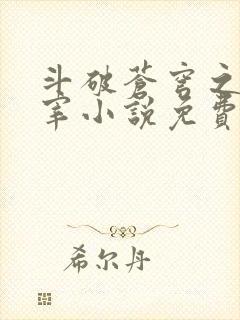 斗破蒼穹之
宰小說免費
希尔丹